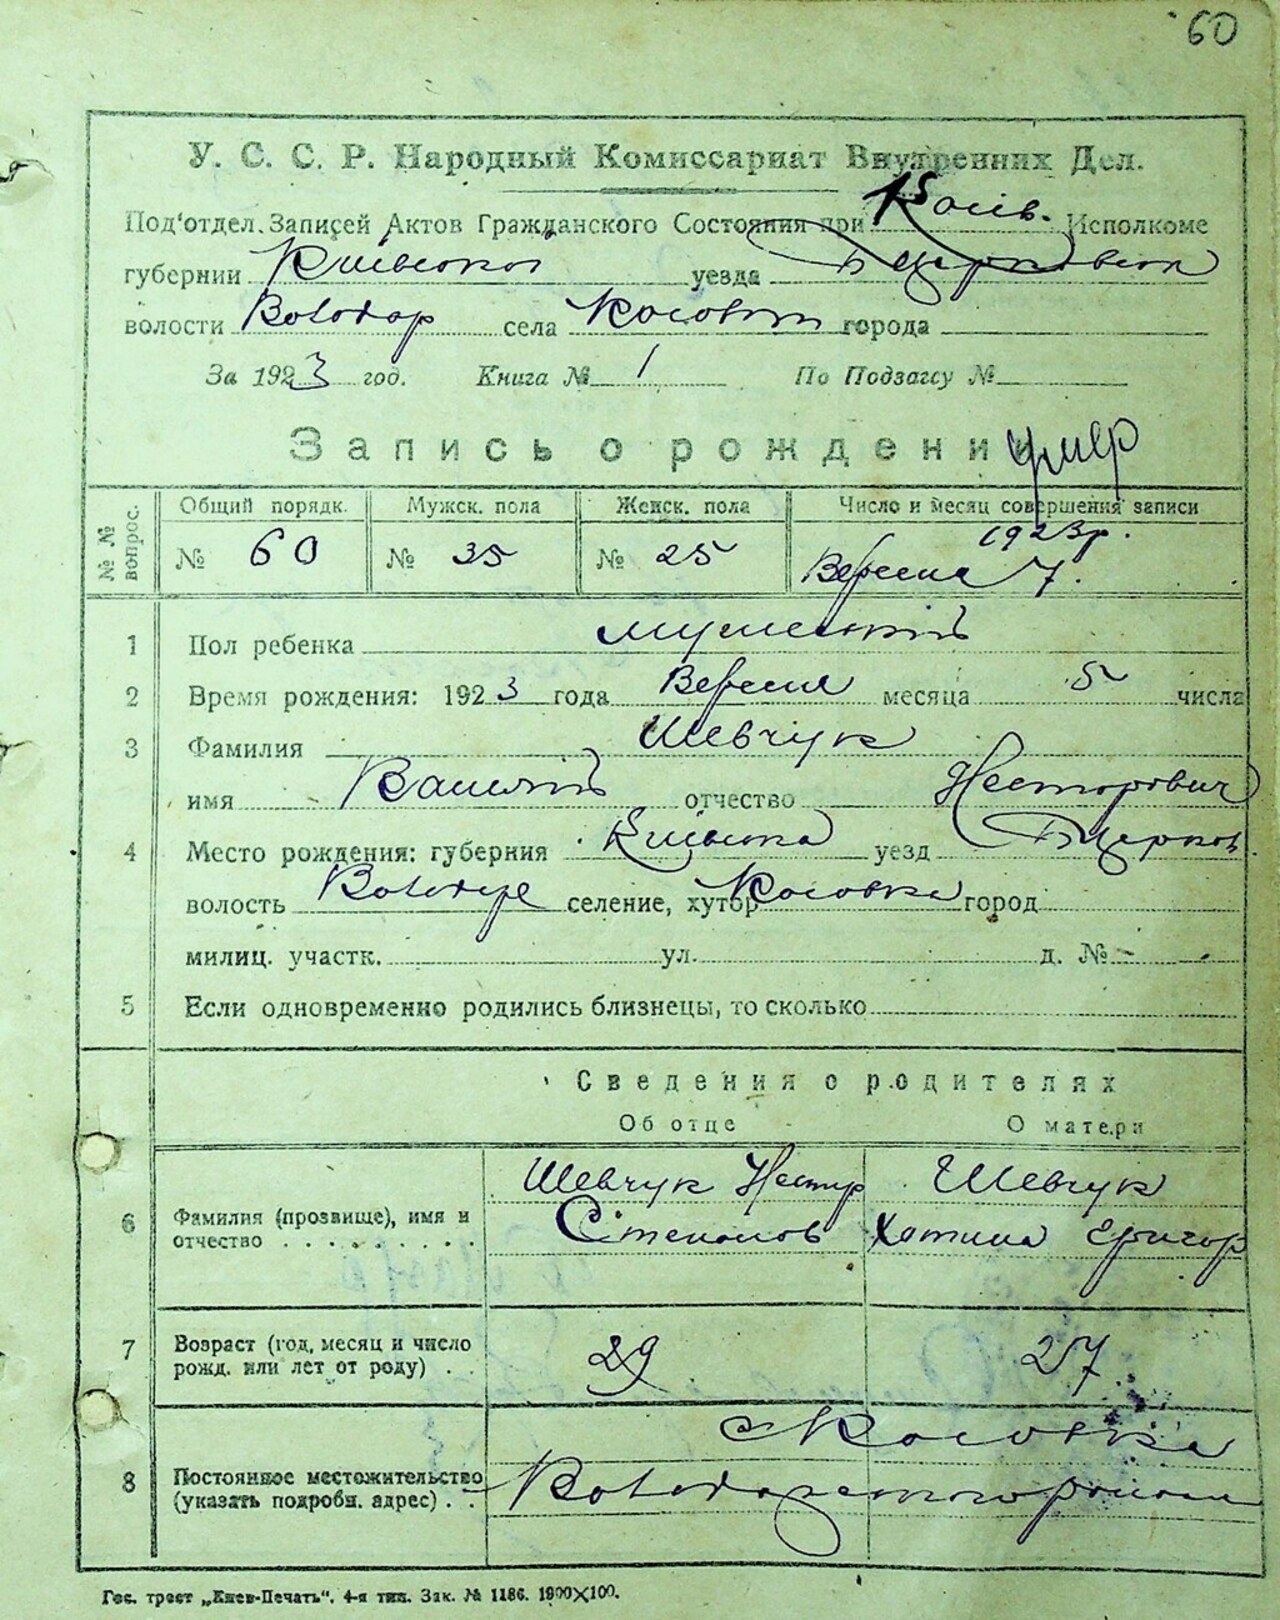 60
У. С. С. Р. Народный Комиссариат Внутренних Дел.
Под'отдел Записей Актов Гражданского Состояния при Косів. Исполкоме
губернии Київської уезда Б Церковськ
волости Володар села Косовки города
За 1923 год. Книга № 1 По Подзагсу №
Запись о рождении умер
№ № вопрос. Общий порядк. Мужск. пола Женск. пола Число и месяц совершения записи
№ 60 № 35 № 25 1923р.
Вересня 7.
1 Пол ребенка мужеський
2 Время рождения: 1923 года Вересня месяца 5 числа
3 Фамилия Шевчук
имя Василій отчество Несторович
4 Место рождения: губерния Київська уезд Б Церков.
волость Володар селение, хутор Косовка город
милиц. участк. ул. д. № -
5 Если одновременно родились близнецы, то сколько
Сведения о родителях
Об отце О матери
6 Фамилия (прозвище), имя и отчество Шевчук Нестир Шевчук
Степанов Хотина Григор
7 Возраст (год, месяц и число рожд. или лет от роду) 29 27
8 Постоянное местожительство (указать подробн. адрес) с Косовка
Володарського району
Гос. трест „Киев-Печать“. 4-я тип. Зак. № 1186. 1900×100.